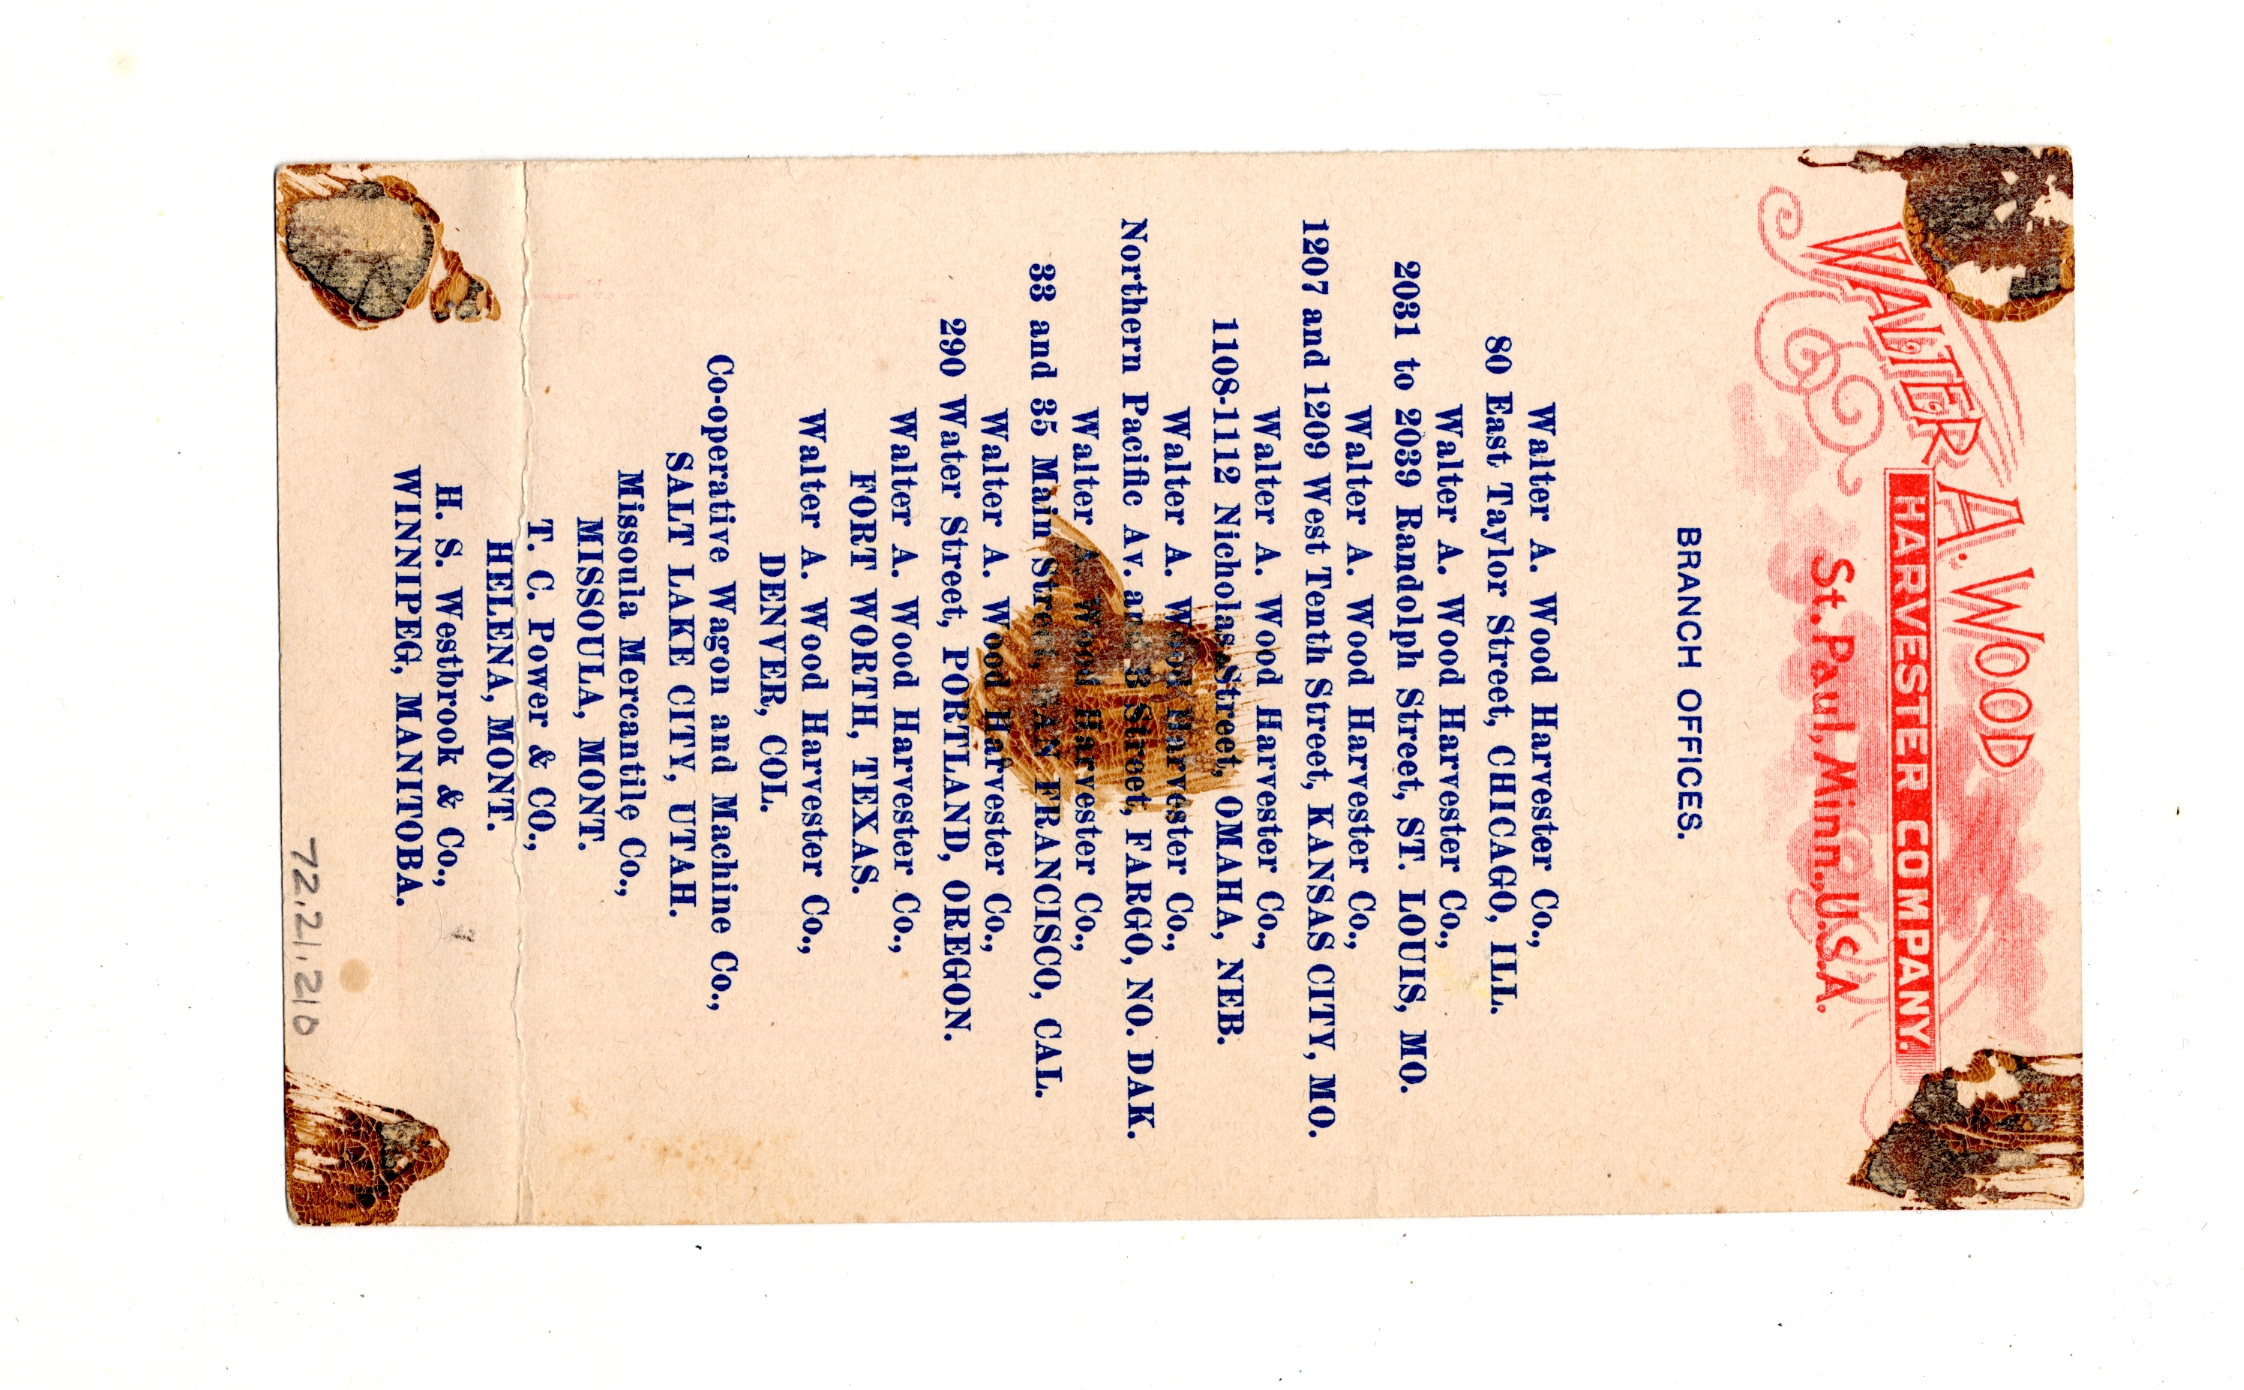 WALTER A. WOOD
HARVESTER COMPANY.
St. Paul, Minn., U.S.A.
BRANCH OFFICES.
Walter A. Wood Harvester Co.,
80 East Taylor Street, CHICAGO, ILL.
Walter A. Wood Harvester Co.,
2031 to 2039 Randolph Street, ST. LOUIS, MO.
Walter A. Wood Harvester Co.,
1207 and 1209 West Tenth Street, KANSAS CITY, MO.
Walter A. Wood Harvester Co.,
1108-1112 Nicholas Street, OMAHA, NEB.
Walter A. Wood Harvester Co.,
Northern Pacific Av. and B Street, FARGO, NO. DAK.
Walter A. Wood Harvester Co.,
33 and 35 Main Street, SAN FRANCISCO, CAL.
Walter A. Wood Harvester Co.,
290 Water Street, PORTLAND, OREGON.
Walter A. Wood Harvester Co.,
FORT WORTH, TEXAS.
Walter A. Wood Harvester Co.,
DENVER, COL.
Co-operative Wagon and Machine Co.,
SALT LAKE CITY, UTAH.
Missoula Mercantile Co.,
MISSOULA, MONT.
T. C. Power & CO.,
HELENA, MONT.
H. S. Westbrook & Co.,
WINNIPEG, MANITOBA.
72.21.21b